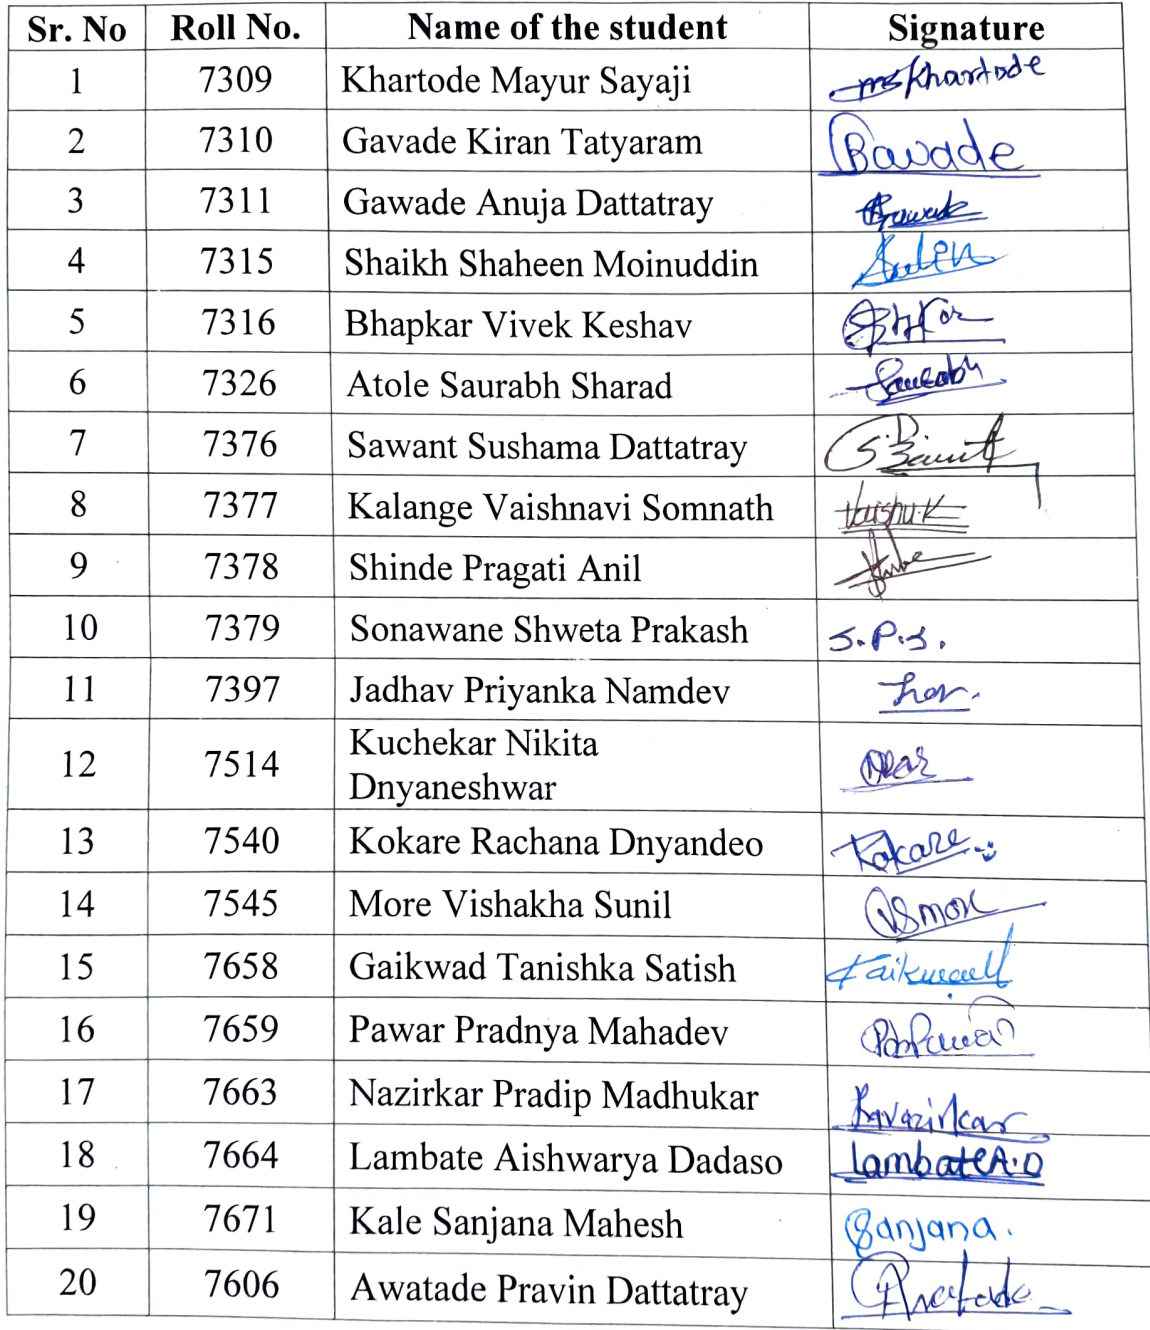 Sr. No Roll No. Name of the student Signature
1 7309 Khartode Mayur Sayaji mskhartode
2 7310 Gavade Kiran Tatyaram Gavade
3 7311 Gawade Anuja Dattatray
4 7315 Shaikh Shaheen Moinuddin
5 7316 Bhapkar Vivek Keshav
6 7326 Atole Saurabh Sharad Saurabh
7 7376 Sawant Sushama Dattatray
8 7377 Kalange Vaishnavi Somnath Vaishu.K
9 7378 Shinde Pragati Anil
10 7379 Sonawane Shweta Prakash S.P.S.
11 7397 Jadhav Priyanka Namdev
12 7514 Kuchekar Nikita
Dnyaneshwar
13 7540 Kokare Rachana Dnyandeo Kokare
14 7545 More Vishakha Sunil VSmore
15 7658 Gaikwad Tanishka Satish Gaikwad
16 7659 Pawar Pradnya Mahadev
17 7663 Nazirkar Pradip Madhukar
18 7664 Lambate Aishwarya Dadaso Lambate A.D
19 7671 Kale Sanjana Mahesh Sanjana.
20 7606 Awatade Pravin Dattatray